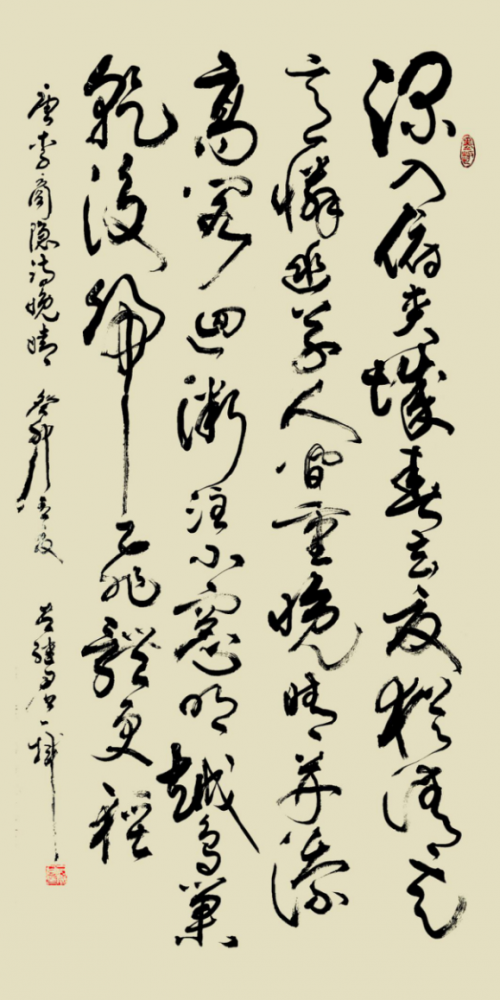 深入俯夾城春去夏猶清天
意憐幽草人間重晚晴并添
高閣迥微注小窗明越鳥巢
乾後歸飛體更輕
唐李商隱詩晚晴 癸卯